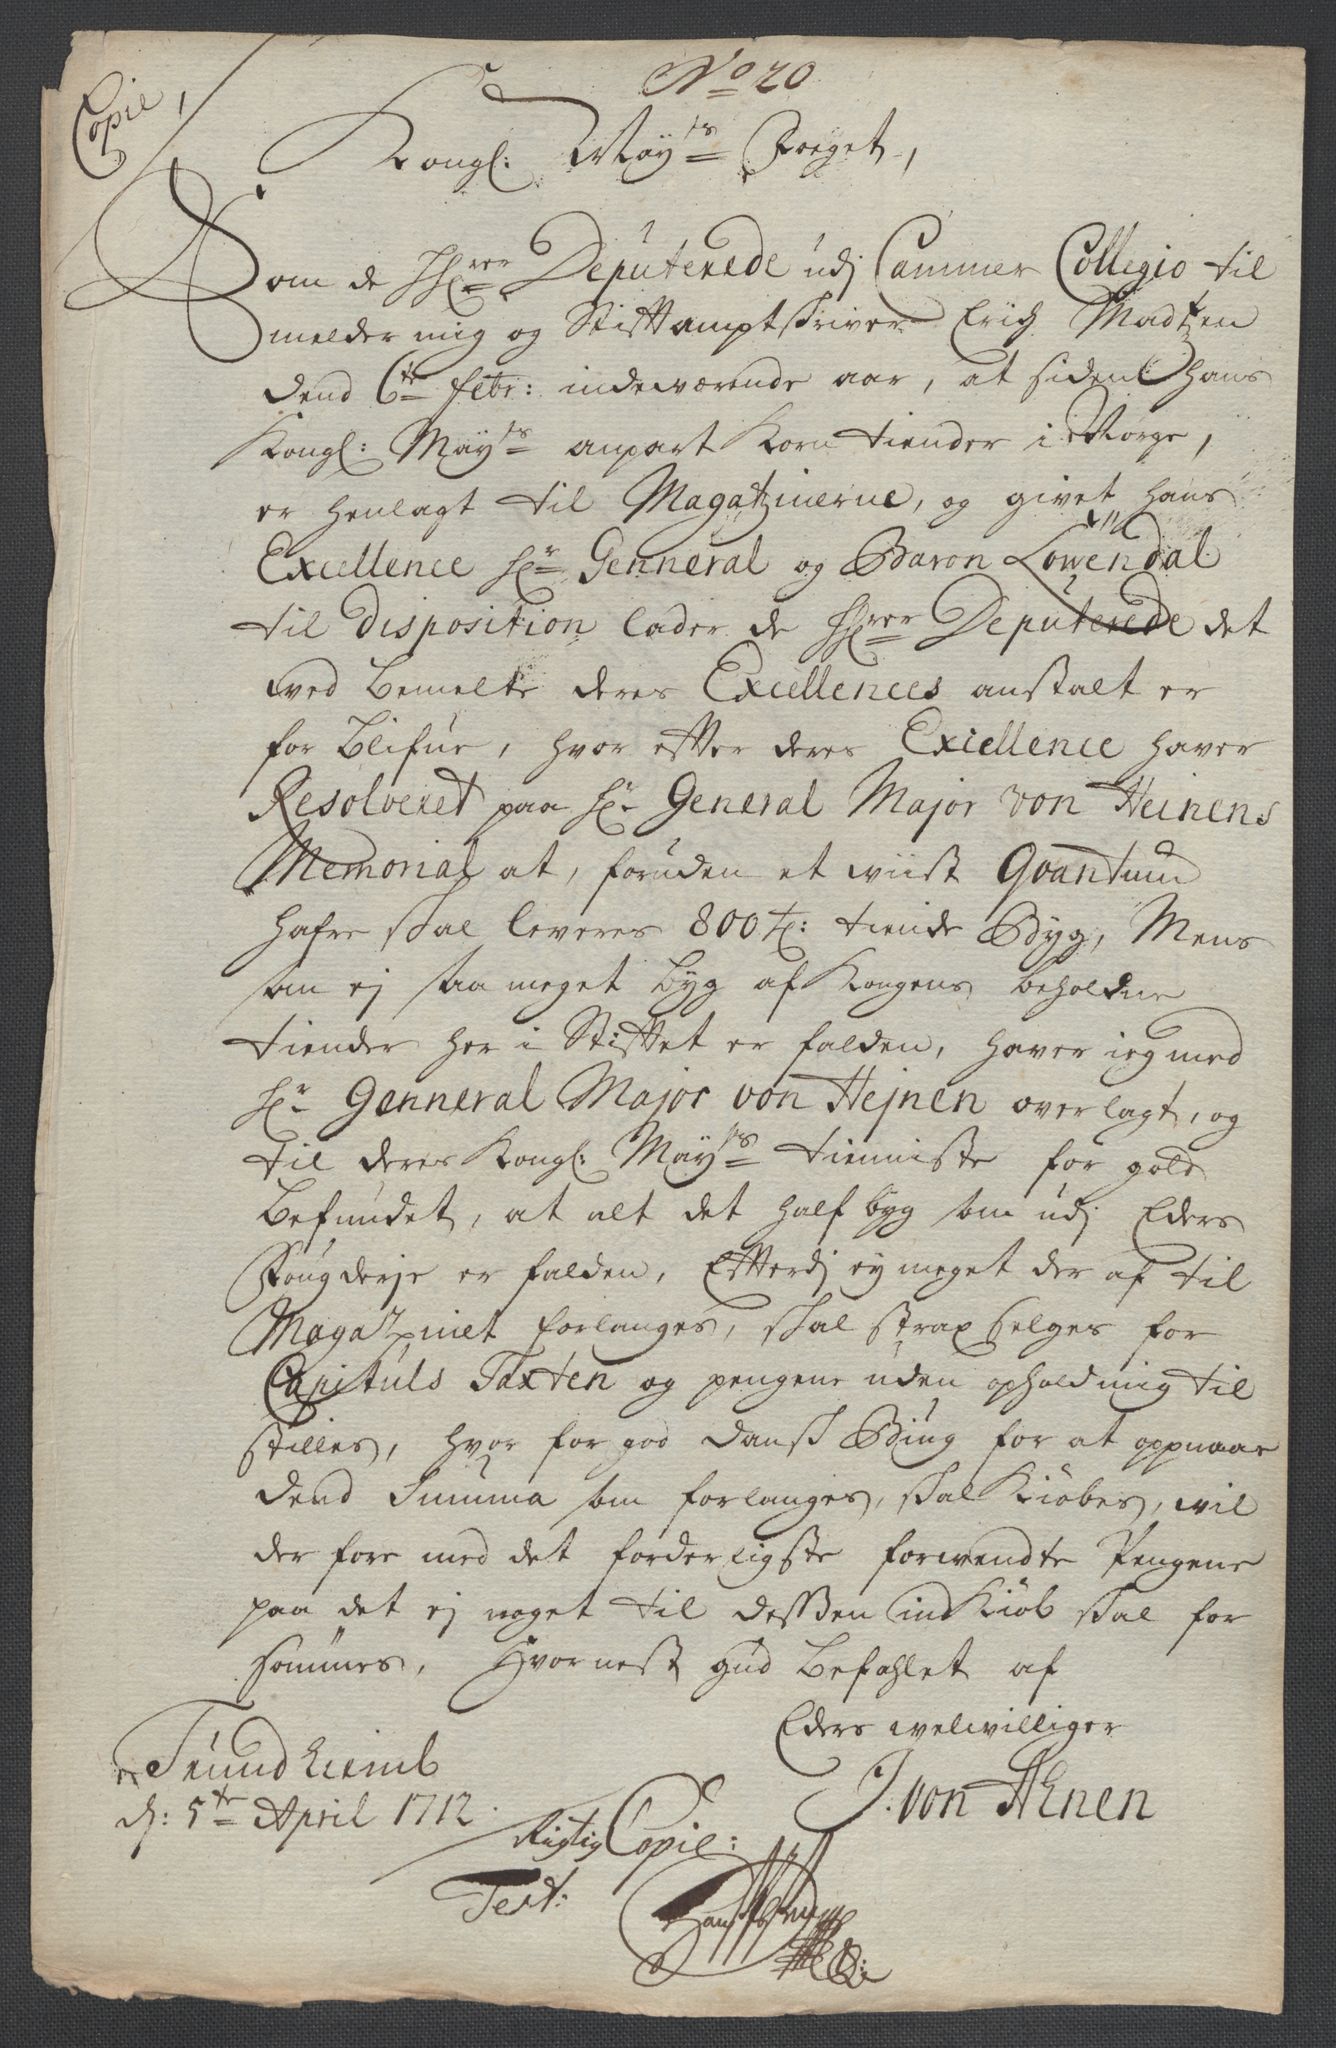 No 20
Copie,
Kongl: Mayts Foeget,
Som de Hrer Deputerede udj Cammer Collegio til
melder mig og Stiftamptskriver Erich Madtzen
dend 6te febr: indeværende aar, at siden hans
Kongl: Mayts anpart Korn tiender i Norge,
er henlagt til Magatzinerne, og givet hans
Excellence Hr Genneral og Baron Löwendal
til disposition lader de Hrer Deputerede det
ved bemelte deres Excellences anstalt er
for blifue, hvor efter deres Exiellence haver
Resolveret paa Hr General Major von Heinens
Memorial at, foruden et wiist Qvantum
hafre skal leveres 800 t: tiende Byg, Mens
som ej saa meget byg af Kongens beholdne
tiender her i Stiftet er falden, haver ieg med
Hr Genneral Major von Hejnen overlagt, og
til deres Kongl: Mayts tienniste for got
befundet, at alt det half byg som udj Eders
Fougderje er falden, Efterdj ey meget der af til
Magatzinet forlanges, skal strax selges for
Capituls Taxten og pengene uden ophold mig til
stilles, hvor for god dansk Biug for at opnaae
dend Summa som forlanges, skal Kiöbes, wil
der fore med det forderligste forwendte Pengene
paa det ej noget til dessen ind Kiöb skal for
sömmes, Hvornest gud befahlet af
Eders welwilliger
J. von Ahnen
Trundheimb
d: 5te April 1712.
Rigtig Copie:
Test: